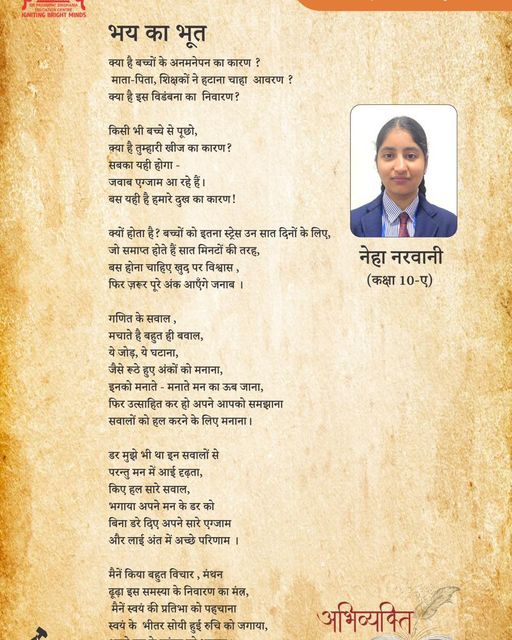 SIR PADAMPAT SINGHANIA
EDUCATION CENTRE
IGNITING BRIGHT MINDS
भय का भूत
क्या है बच्चों के अनमनेपन का कारण ?
माता-पिता, शिक्षकों ने हटाना चाहा आवरण ?
क्या है इस विडंबना का निवारण?
किसी भी बच्चे से पूछो,
क्या है तुम्हारी खीज का कारण?
सबका यही होगा -
जवाब एग्जाम आ रहे हैं।
बस यही है हमारे दुख का कारण!
क्यों होता है? बच्चों को इतना स्ट्रेस उन सात दिनों के लिए,
जो समाप्त होते हैं सात मिनटों की तरह,
बस होना चाहिए खुद पर विश्वास ,
फिर ज़रूर पूरे अंक आएँगे जनाब ।
गणित के सवाल ,
मचाते है बहुत ही बवाल,
ये जोड़, ये घटाना,
जैसे रूठे हुए अंकों को मनाना,
इनको मनाते - मनाते मन का ऊब जाना,
फिर उत्साहित कर हो अपने आपको समझाना
सवालों को हल करने के लिए मनाना।
डर मुझे भी था इन सवालों से
परन्तु मन में आई दृढ़ता,
किए हल सारे सवाल,
भगाया अपने मन के डर को
बिना डरे दिए अपने सारे एग्जाम
और लाई अंत में अच्छे परिणाम ।
मैनें किया बहुत विचार , मंथन
ढूढ़ा इस समस्या के निवारण का मंत्र,
मैनें स्वयं की प्रतिभा को पहचाना
स्वयं के भीतर सोयी हुई रुचि को जगाया,
नेहा नरवानी
(कक्षा 10-ए)
अभिव्यक्ति